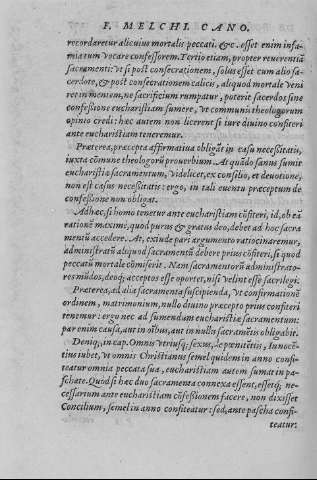 F. MELCHI. CANO.
recordaretur alicuius mortalis peccati. &c. esset enim infa-
mia tum vocare confessorem. Tertio etiam, propter reuerentiã
sacramenti: vt si post consecrationem, solus esset cum alio sa-
cerdote, & post consecrationem calicis, aliquod mortale veni
ret in mentem, ne sacrificium rumpatur, poterit sacerdos sine
cõfessione eucharistiam sumere, vt communis theologorum
opinio credit: hec autem non licerent si iure diuino confiteri
ante eucharistiam teneremur.
Præterea, præcepta affirmatiua obligãt in casu necessitatis,
iuxta cõmune theologorũ prouerbium. At quãdo sanus sumit
eucharistiæ sacramentum, videlicet, ex consilio, et deuotione,
non est casus necessitatis: ergo, in tali euentu præceptum de
confessione non obligat.
Adhæc, si homo tenetur ante eucharistiam cõfiteri, id, ob eã
rationẽ maximè, quod purus & gratus deo, debet ad hoc sacra
mentũ accedere. At, exinde pari argumento ratiocinaremur,
administratũ aliquod sacramentũ debere prius cõfiteri, si quod
peccatũ mortale cõmiserit. Nam sacramentorũ administrato-
res mũdos, deoq; acceptos esse oportet, nisi velint esse sacrilegi.
Præterea, ad alia sacramenta suscipienda, vt confirmationẽ
ordinem, matrimonium, nullo diuino præcepto prius confiteri
tenemur: ergo nec ad sumendum eucharistiæ sacramentum:
par enim causa, aut in oibus, aut in nullis sacramẽtis obligabit.
Deniq; in cap. Omnis vtriusq; sexus, de pœnitẽtiis, Innocẽ-
tius iubet, vt omnis Christianus semel quidem in anno confi-
teatur omnia peccata sua, eucharistiam autem sumat in pa-
schate. Quòd si hæc duo sacramenta connexa essent, essetq; ne-
cessarium ante eucharistiam cõfessionem facere, non dixisset
Concilium, semel in anno confiteatur: sed, ante pascha confi-
teatur: